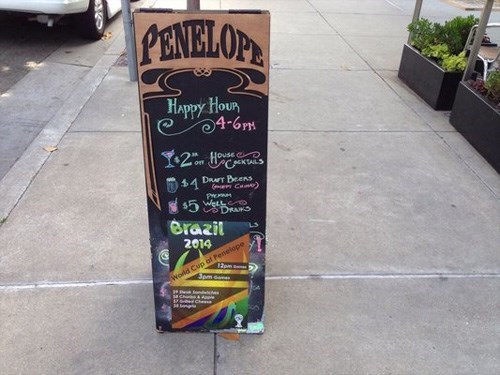 PENELOPE
HAPPY HOUR
4-6PM
$2 OFF HOUSE COCKTAILS
$4 DRAFT BEERS
PREMIUM
$5 WELL DRINKS
Brazil
2014
World Cup at Penelope
12pm Games
3pm Games
$9 Steak Sandwiches
$8 Chorizo & Apple
$7 Grilled Cheese
$5 Sangria